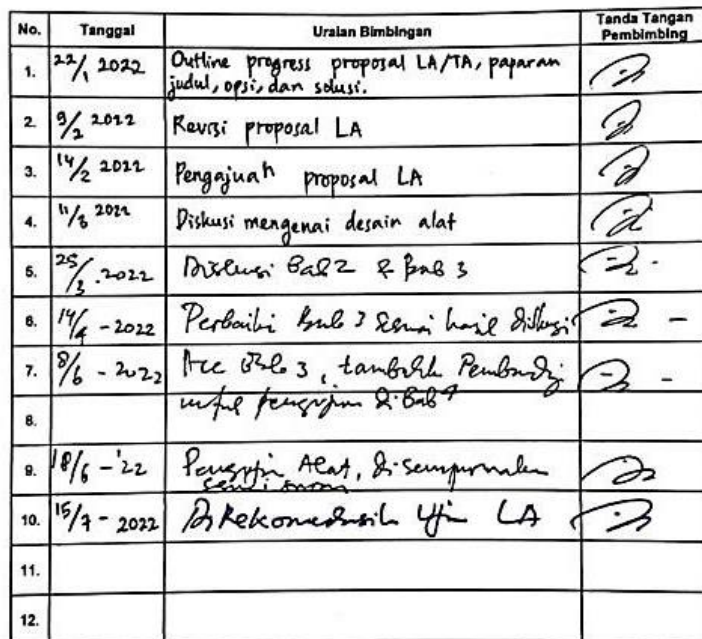 No. Tanggal Uraian Bimbingan Tanda Tangan
Pembimbing
1. 22/1 2022 Outline progress proposal LA/TA, paparan
judul, opsi, dan solusi.
2. 9/2 2022 Revisi proposal LA
3. 14/2 2022 Pengajuah proposal LA
4. 11/3 2022 Diskusi mengenai desain alat
5. 25/3. 2022 Diskusi Bab 2 & Bab 3
6. 14/4 - 2022 Perbaiki Bab 3 sesuai hasil diskusi
7. 8/6 - 2022 Acc Bab 3, tambahk Pembanding
pengujian di Bab 4
8.
9. 18/6 - '22 Pengujian Alat, disempurnakan
10. 15/7 - 2022 Ujin LA
11.
12.